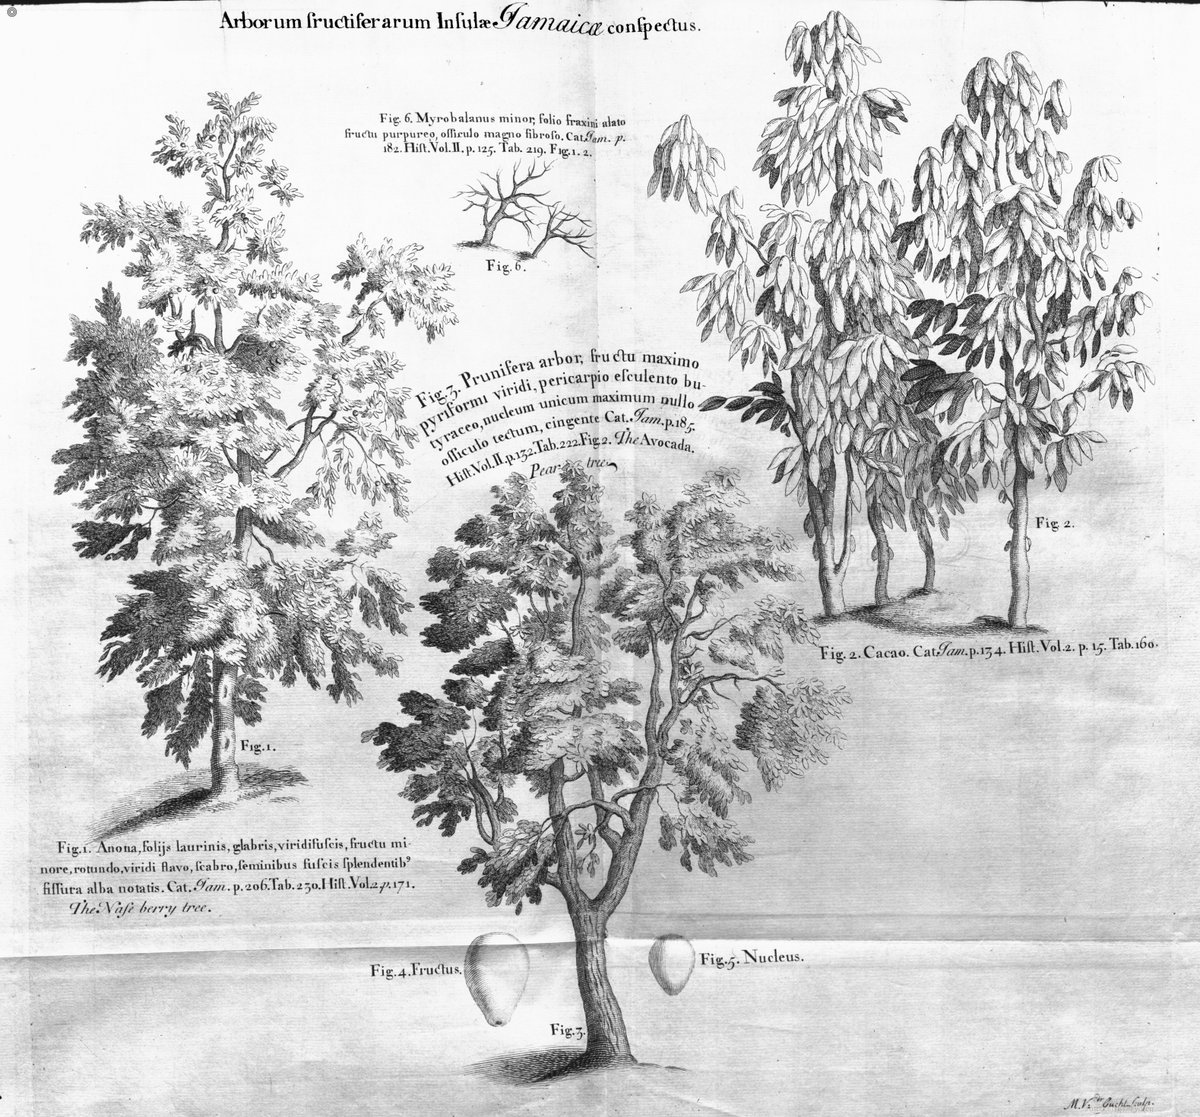 Arborum fructiferarum Insulæ Jamaicæ conspectus.
Fig. 6. Myrobalanus minor, folio fraxini alato
fructu purpureo, officulo magno fibroso. Cat. Jam. p.
182. Hist. Vol. II. p. 125. Tab. 219. Fig. 1. 2.
Fig. 6.
Fig. 3. Prunifera arbor, fructu maximo
pyriformi viridi, pericarpio esculento bu-
tyraceo, nucleum unicum maximum nullo
officulo tectum, cingente Cat. Jam. p. 185.
Hist. Vol. II. p. 132. Tab. 222. Fig. 2. The Avocada.
Pear tree
Fig. 2.
Fig. 2. Cacao. Cat. Jam. p. 134. Hist. Vol. 2. p. 15. Tab. 160.
Fig. 1.
Fig. 1. Anona, folijs laurinis, glabris, viridifuscis, fructu mi-
nore, rotundo, viridi flavo, scabro, seminibus fuscis splendentib9
fissura alba notatis. Cat. Jam. p. 206. Tab. 230. Hist. Vol. 2 p. 171.
The Nase berry tree.
Fig. 4. Fructus.
Fig. 5. Nucleus.
Fig. 3.
M. V.dr Gucht Sculp.